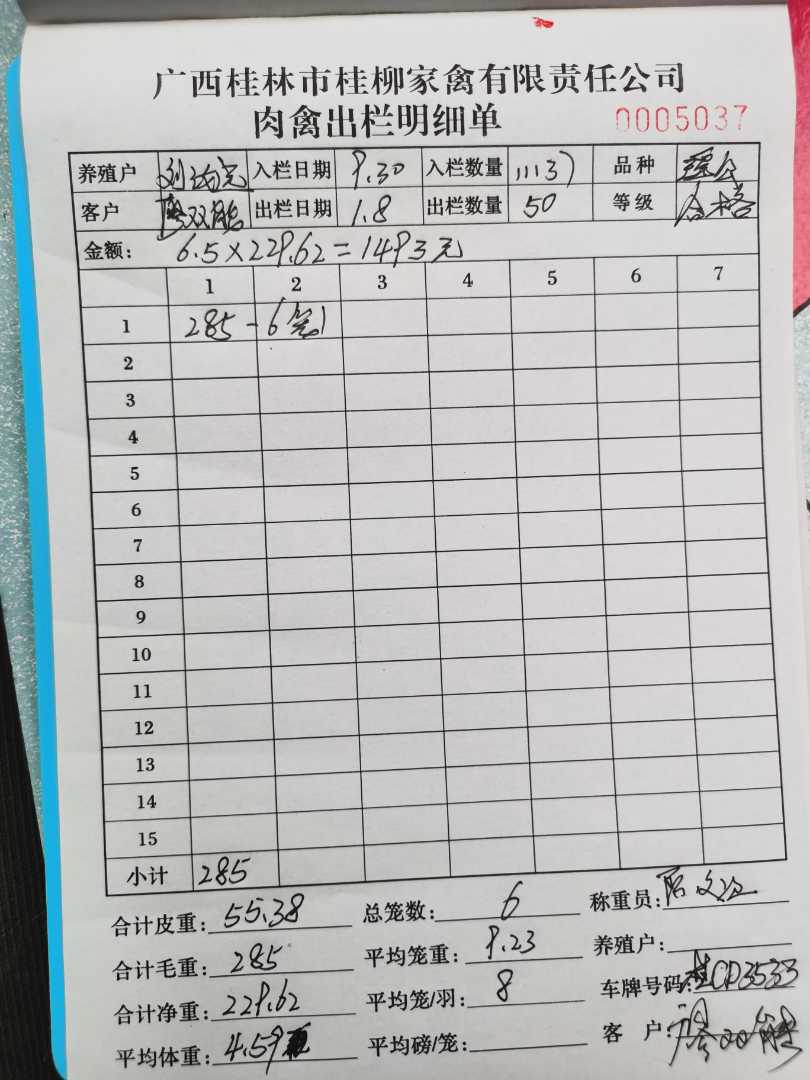 广西桂林市桂柳家禽有限责任公司
肉禽出栏明细单 0005037
养殖户 入栏日期 9.30 入栏数量 11137 品种
客户 廖双能 出栏日期 1.8 出栏数量 50 等级 合格
金额: 6.5×229.62=1493元
1 2 3 4 5 6 7
1 285-6
2
3
4
5
6
7
8
9
10
11
12
13
14
15
小计 285
合计皮重: 55.38 总笼数: 6 称重员:
合计毛重: 285 平均笼重: 9.23 养殖户:
合计净重: 229.62 平均笼/羽: 8 车牌号码: 桂CD3533
平均体重: 4.59 平均磅/笼: 客 户: 廖双能